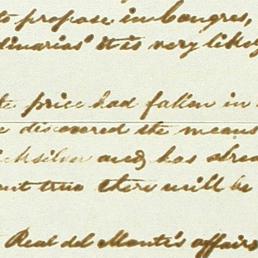 to propose in Congres,
dinarias" it is very likely
price had fallen in
discovered the means
and has alrea
true there will be
Real del Monte's affairs